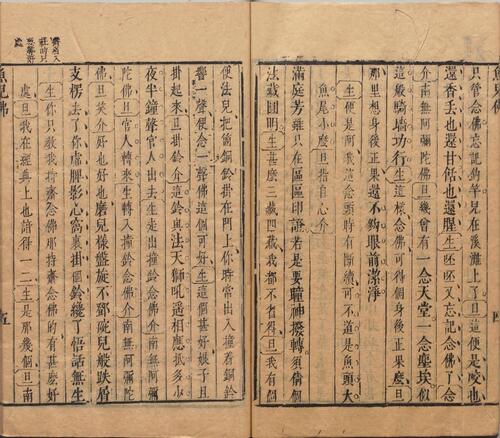 只管念佛只教鉤竿兒在溪灘上了旦這便是咬也
還香丟也還甘恬也還腥生呸呸又忘記念佛了旦
介南無阿彌陀佛旦幾曾有一念天堂一念塵埃似
這般騎墻功行生這樣念佛可得個身後正果麼旦
那里想身後正果還不夠眼前潔淨
生便是阿我這念頭時有斷續可不道是魚頭大
魚尾小麼旦指自心介
滿庭芳雖只在區區印證若是要瞳神撥轉須倩個
法藏圓明生甚麼三藏四藏我都不省得旦我有個
四
便法兒把箇銅鈴掛在門上你時常出入撞着銅鈴
響一聲便念一聲佛這個可好生這個甚好娘子且
掛起來旦掛鈴介這鈴與法天獅吼遥相應抵多少
夜半鐘聲官人出去生走出撞鈴念佛介南無阿彌
陀佛旦官人轉來生轉入撞鈴念佛介南無阿彌陀
佛旦笑介好也好也磨兒樣盤旋不鄧碇兒般趺眉
支楞去了你虛脾影心窩裏掛個鈴纔了悟話無生
生你只教我持齋念佛那持齋念佛的有甚麼好
處旦我在經典上也諳得一二生是那幾個旦南
魚兒佛
五